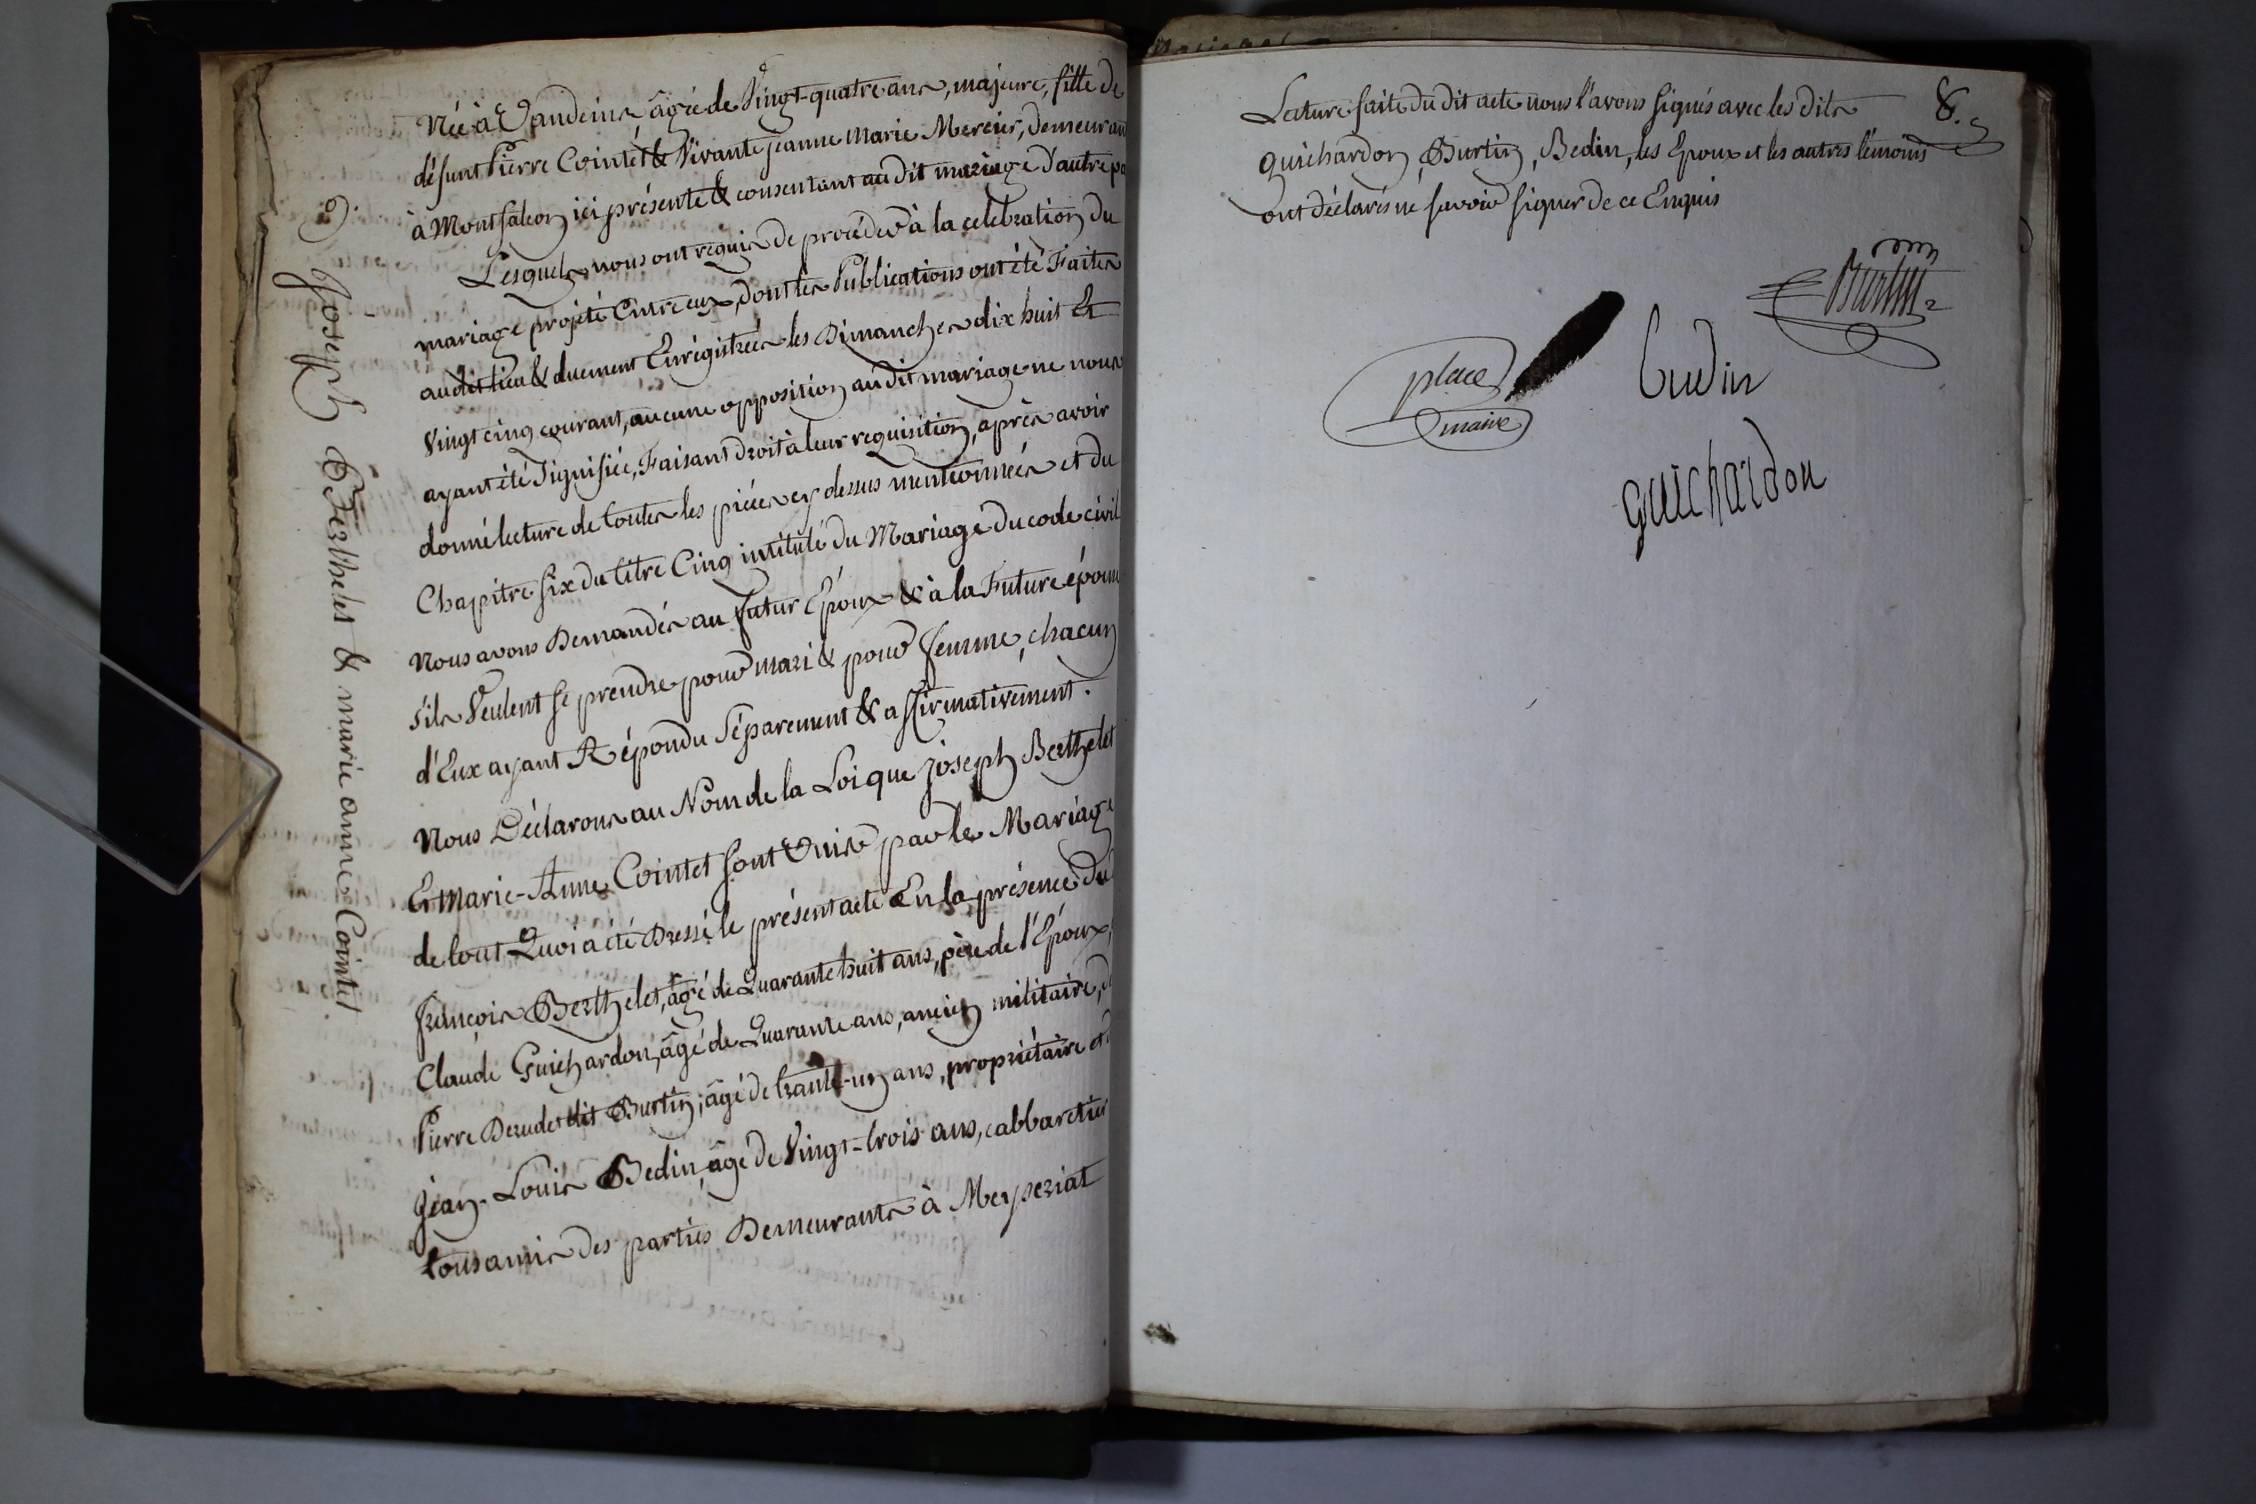 9.
Joseph Berthelet & marie anne Cointet
Née à Vandeins âgée de Vingt-quatre ans, majeure, fille de
défunt Pierre Cointet & Vivante jeanne Marie Mercier, Demeuran
à Montfalcon ici présente & consentant au dit mariage d'autre pa
Lesquels nous ont requis de procéder à la celebration du
mariage projeté Entre eux, dont les Publications ont été Faites
audit lieu & duement Enrégistrées les Dimanches dix huit Et
Vingt cinq courant, aucune opposition au dit mariage ne nous
ayant été Signifiée, Faisant Droit à leur requisition, après avoir
donné lecture de toutes les pièces cy dessus mentionnées et du
Chapitre six du titre Cinq intitulé du Mariage du code civil
Nous avons Demandés au futur Epoux & à la Future épouse
s'ils Veulent se prendre pour mari & pour femme, chacun
d'Eux ayant Répondu Séparement & affirmativement.
Nous Déclarons au Nom de la Loi que Joseph Berthelet
Et Marie-Anne Cointet sont Unis par le Mariage
de tout Quoi a été Dressé le présent acte En la présence du
françois Berthelet, âgé de Quarante huit ans, père de l'Epoux,
Claude Guichardon, âgé de Quarante ans, ancien militaire, d
Pierre Derudet dit Burtin, âgé de trante-un ans, propriétaire et
Jean-Louis Bedin, âgé de Vingt-trois ans, cabbaretier
tous amis des parties Demeurants à Meyseriat
8.
Lecture faite du dit acte nous l'avons signés avec les dits
Guichardon, Burtin, Bedin, les Epoux et les autres témoins
ont déclarés ne savoir signer de ce Enquis
Burtin
place
maire
budin
guichardon